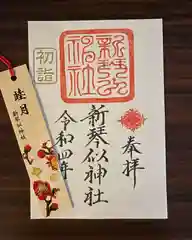 奉拝
新琴似神社
令和四年
初詣
新琴似神社
睦月
新琴似神社